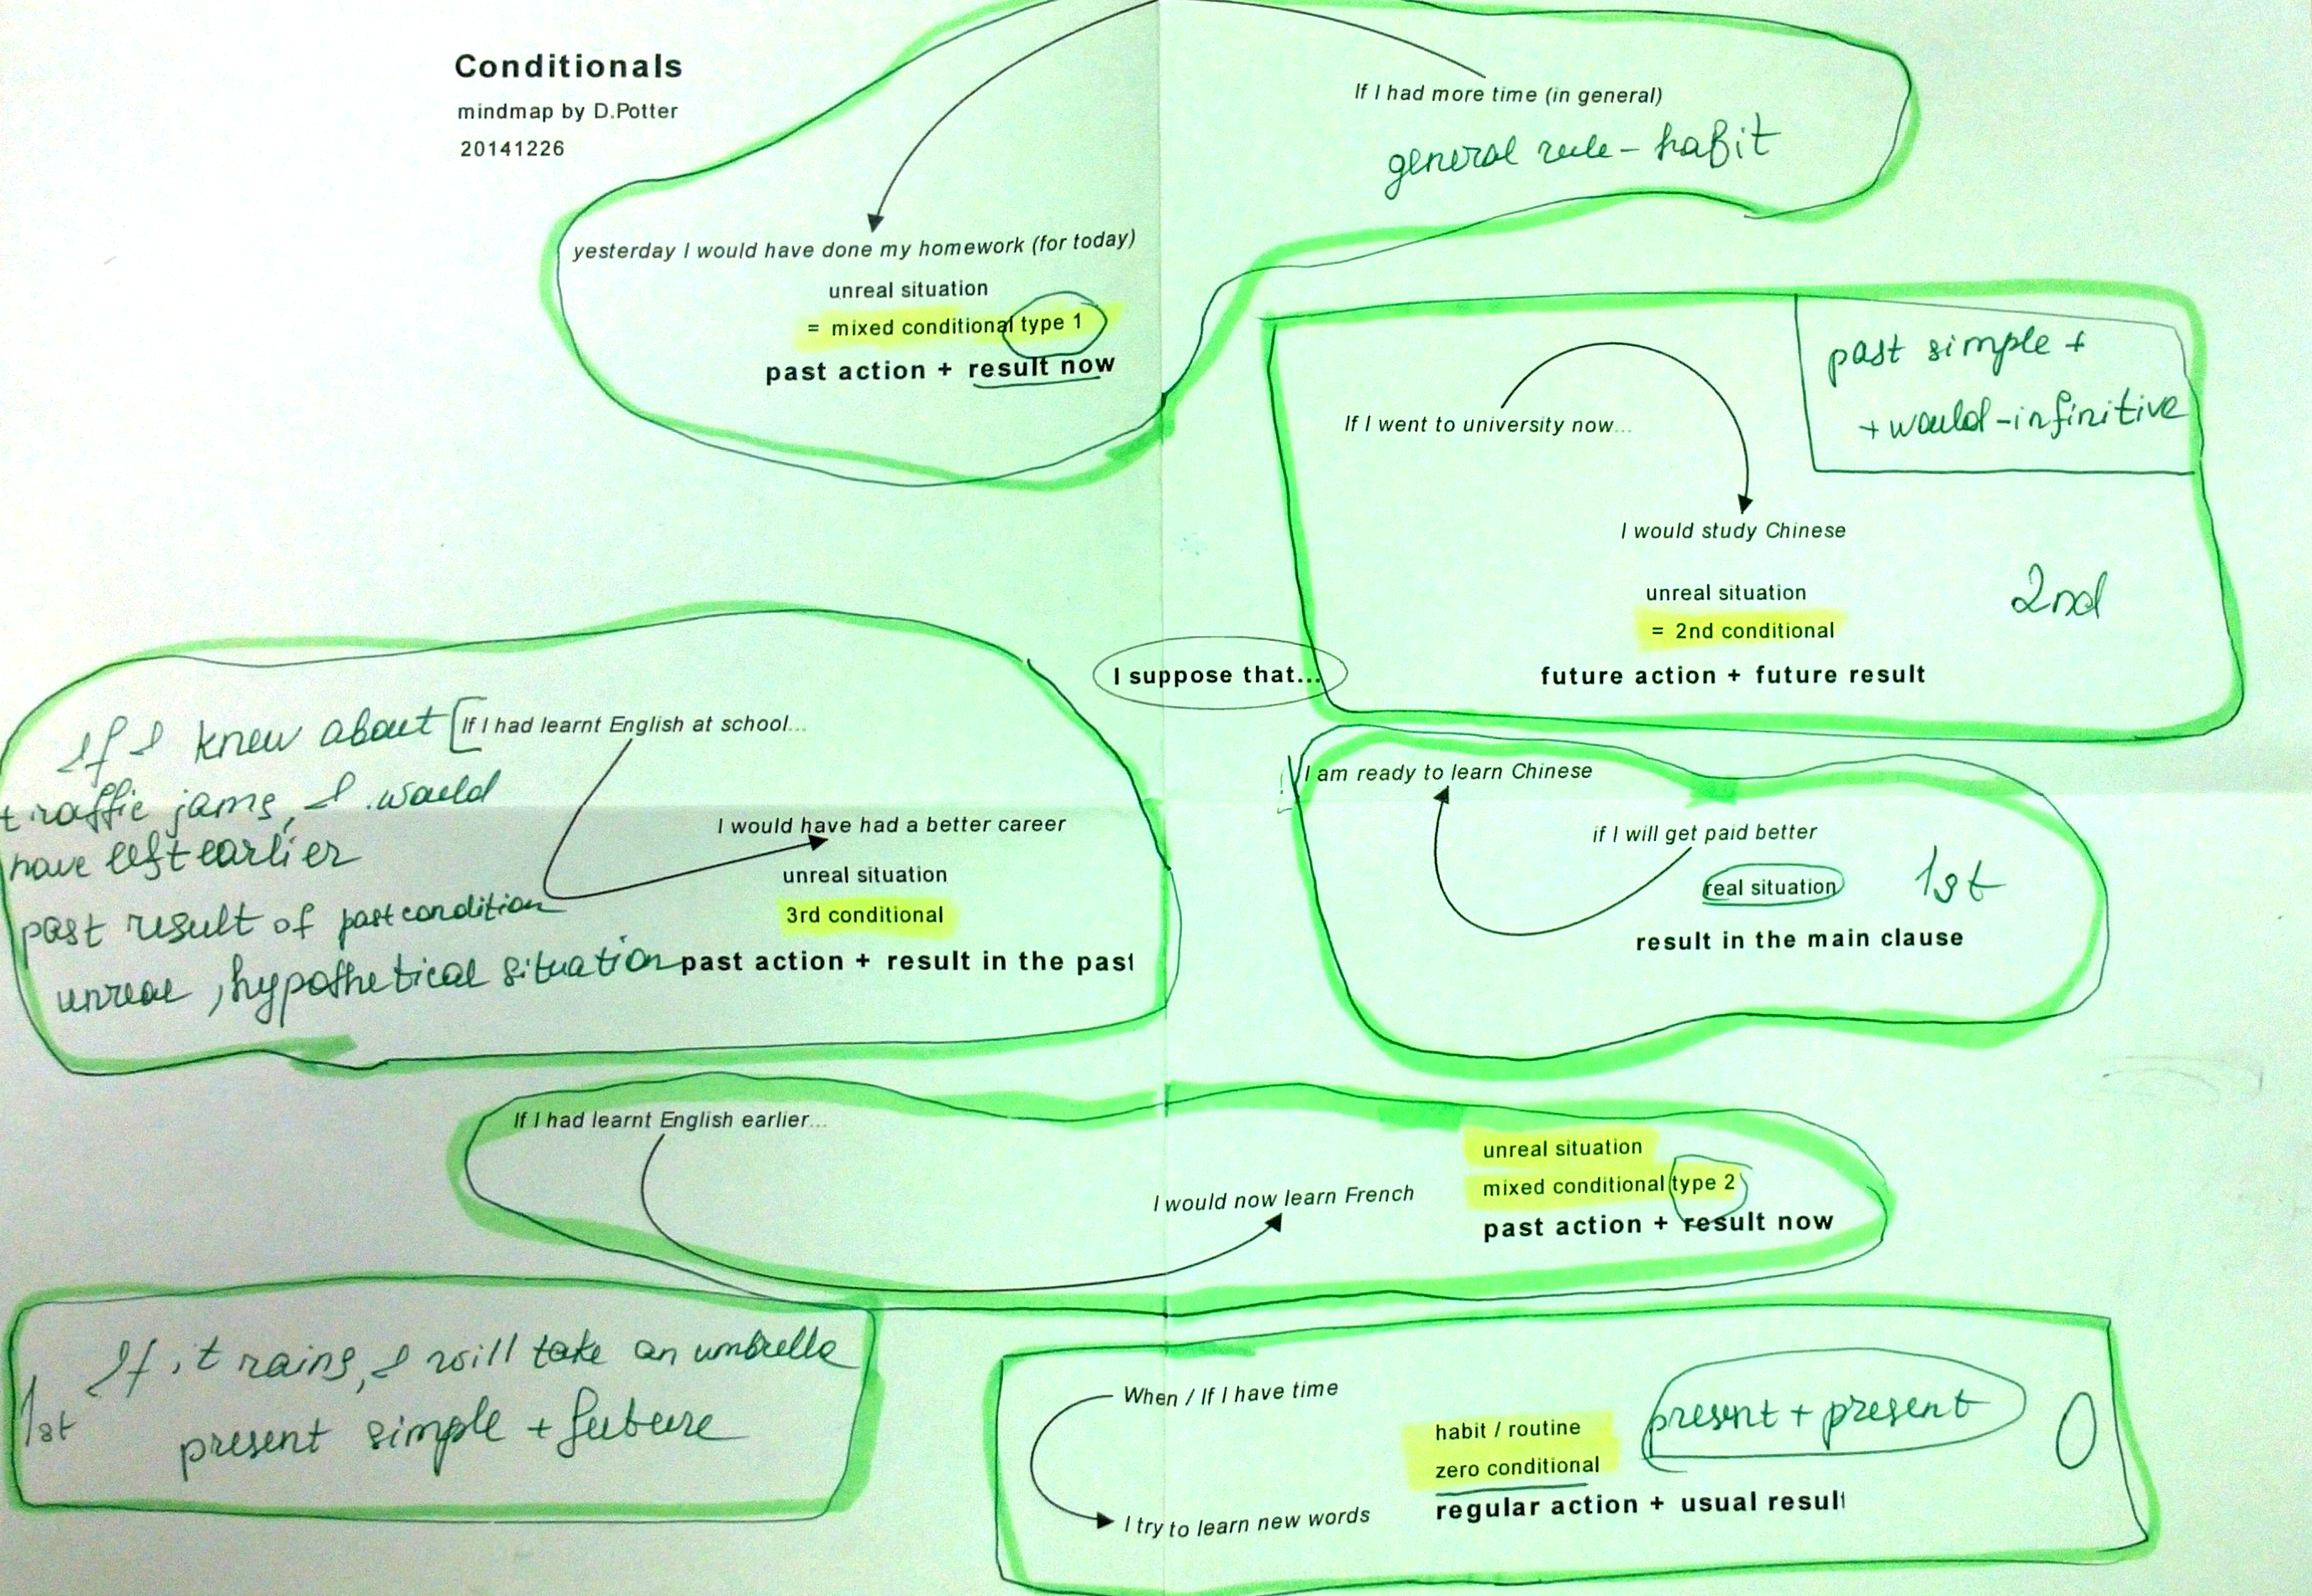 Conditionals
mindmap by D.Potter
20141226
If I had more time (in general)
general rule - habit
yesterday I would have done my homework (for today)
unreal situation
= mixed conditional type 1
past action + result now
past simple +
+ would-infinitive
If I went to university now...
I would study Chinese
unreal situation
= 2nd conditional
2nd
future action + future result
I suppose that...
If I knew about
traffic jams, I would
have left earlier
past result of past condition
unreal, hypothetical situation
If I had learnt English at school...
I would have had a better career
unreal situation
3rd conditional
past action + result in the past
I am ready to learn Chinese
if I will get paid better
real situation
1st
result in the main clause
If I had learnt English earlier...
I would now learn French
unreal situation
mixed conditional type 2
past action + result now
If it rains, I will take an umbrella
1st
present simple + future
When / If I have time
I try to learn new words
habit / routine
zero conditional
regular action + usual result
present + present
0